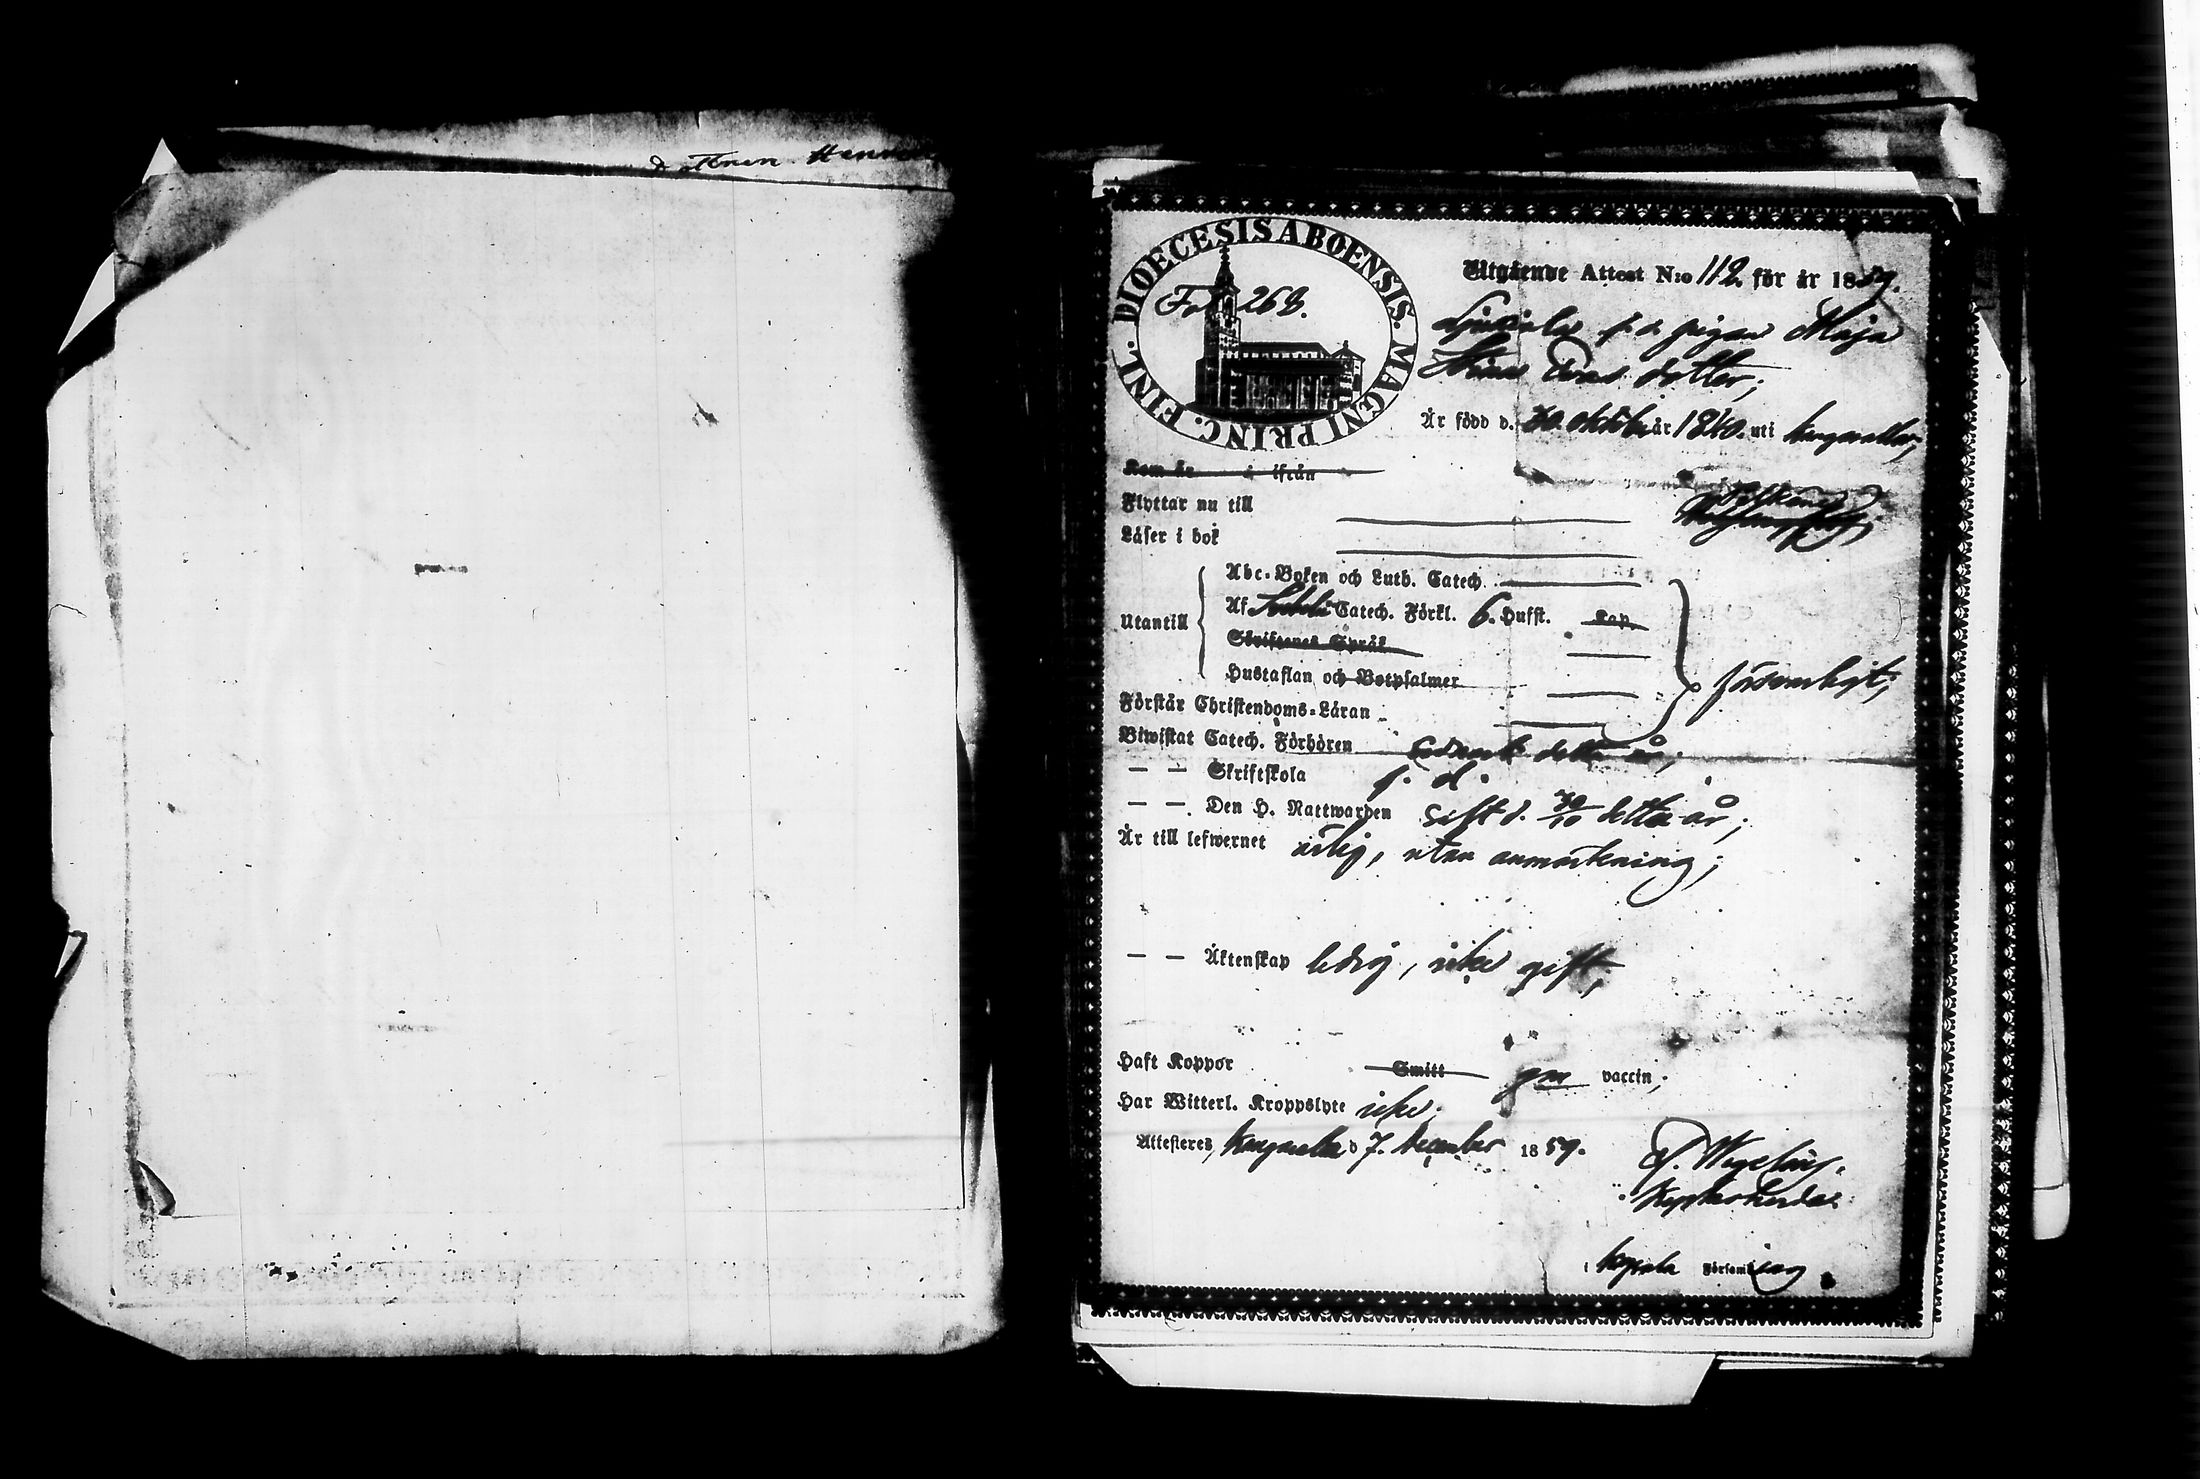 dottren Hen
DIOECESIS ABOENSIS. MAGNI PRINC. FINL.
Fol 268.
Utgående Attest N:o 112 för år 1859.
f. d. pigan Maja
Stina dotter;
Är född d. 30. oktober år 1840. uti Kangasala,
Kom år i ifrån
Flyttar nu till
Läser i bok
Abc-Boken och Luth. Catech.
Utantill
Af Catech. Förkl. 6. Hufst. Kap.
Skriftenes Språk
Hustaflan och Botpsalmer
försvarligt;
Förstår Christendoms-Läran
Biwistat Catech. Förhören detta år;
— — Skriftskola f. d.
— — Den H. Nattwarden sist d. 30/10 detta år;
Är till lefwernet ärlig, utan anmärkning;
— — Äktenskap ledig, icke gift;
Haft Koppor Smitt gm vaccin;
Har Witterl. Kroppslyte icke.
Attesteres, Kangasala d 7. December 1859.
Kyrkoherde.
i Kangasala Församling